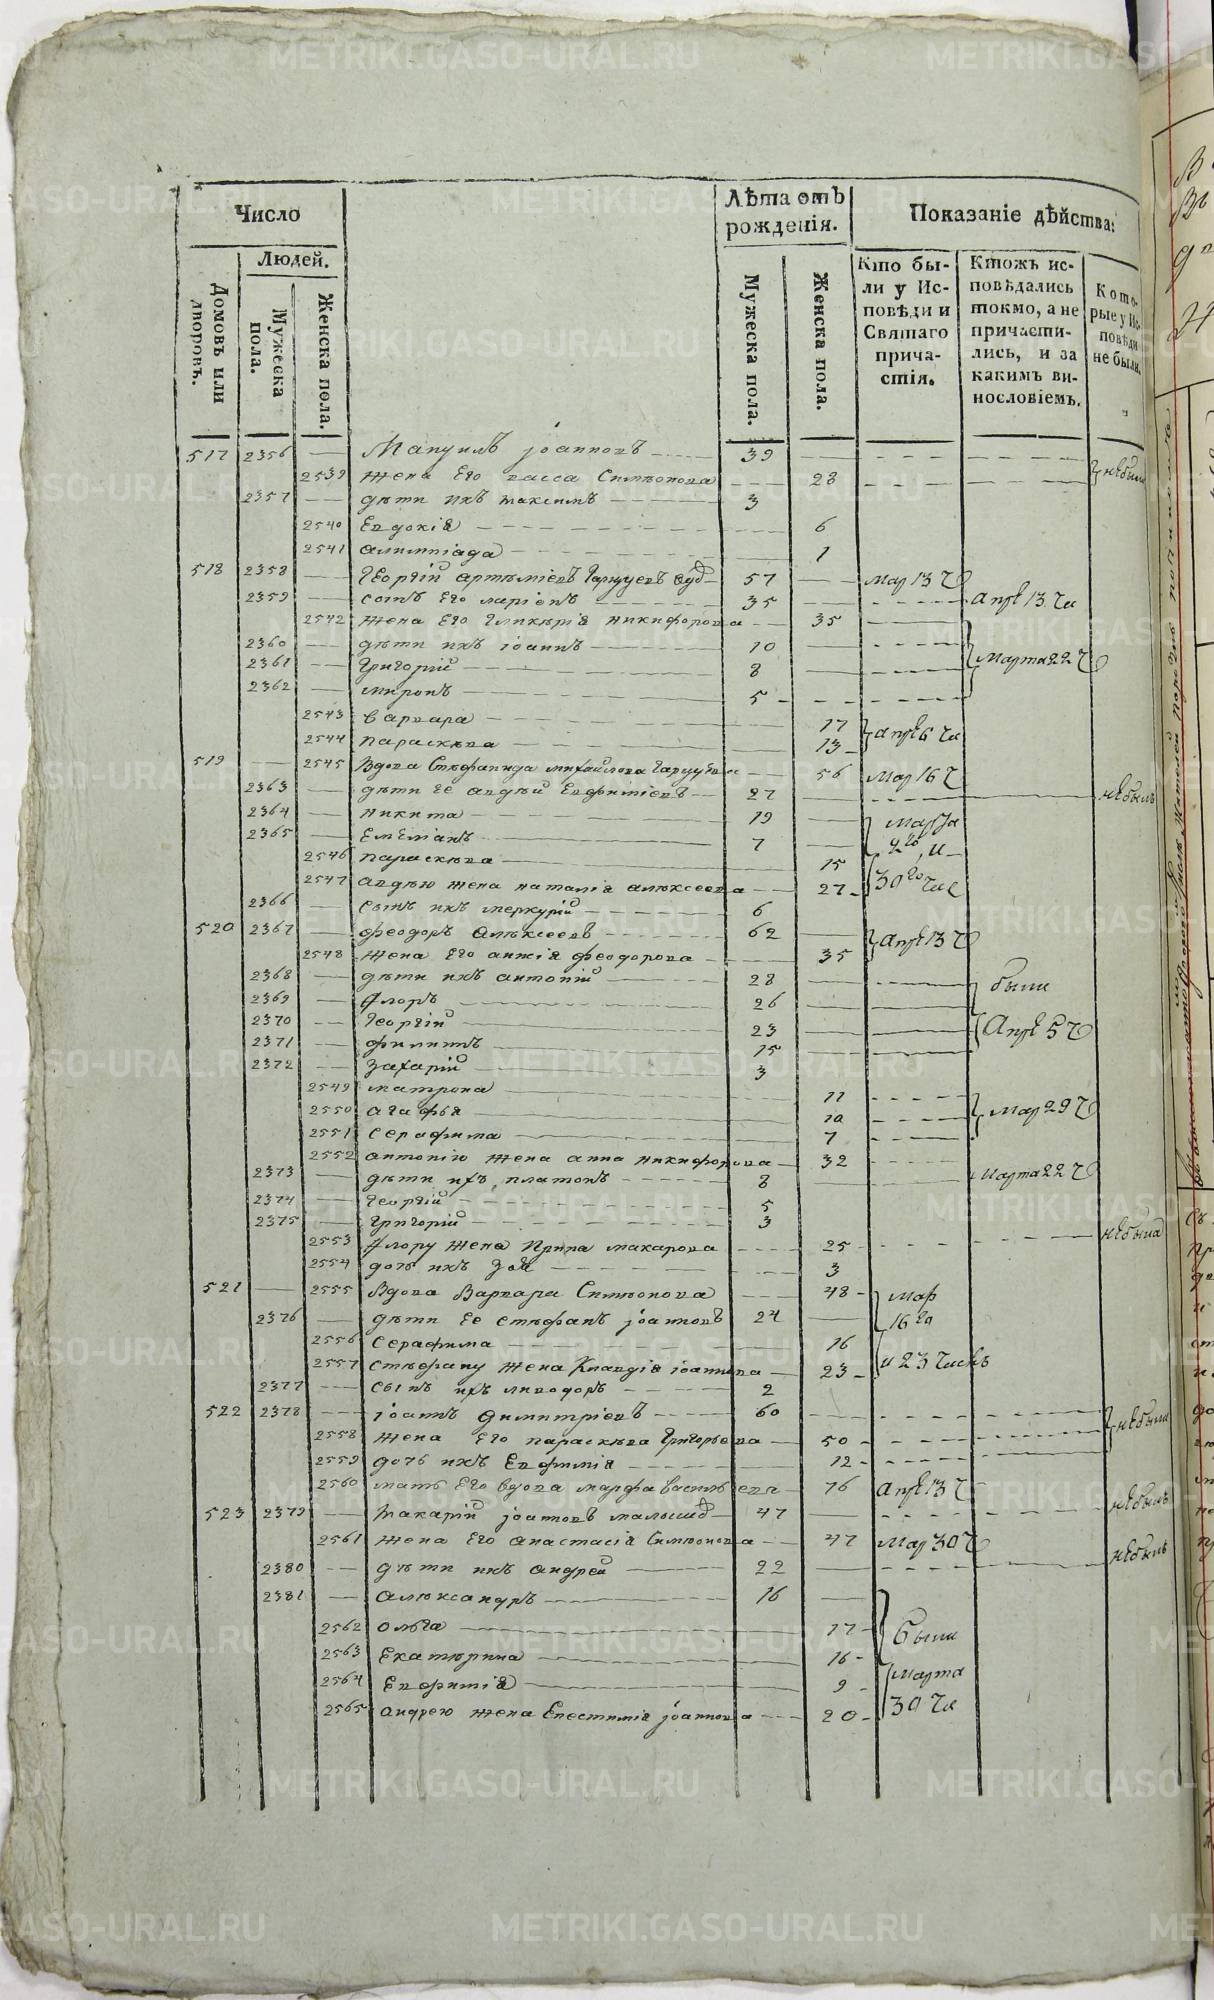 Число
Людей.
Домовъ или дворовъ.
Мужеска пола.
Женска пола.
Лѣта отъ рожденія.
Мужеска пола.
Женска пола.
Показаніе дѣйства:
Кто были у Исповѣди и Святаго причастія.
Ктожъ исповѣдались токмо, а не причастились, и за какимъ винословіемъ.
Которые у Исповѣди не были.
517 2356 Мануилъ Іоанновъ 39
2539 жена Его васса Симеонова 28 небыли
2357 дѣти ихъ максимъ 3
2540 Евдокія 6
2541 олимпіада 1
518 2358 Георгій артеміевъ 57 Мар 13 Ч
2359 сынъ Его ларіонъ 35 апрѣ 13 Чи
2542 жена Его Гликерія никифорова 35
2360 дѣти ихъ іоаннъ 10
2361 Григорій 8 Марта 22 Ч
2362 миронъ 5
2543 варвара 17 апрѣ 6 Чи
2544 параскева 13
519 2545 Вдова Стефанида михайлова 56 Мар 16 Ч
2363 дѣти Ее авдѣй Евфиміевъ 27 небылъ
2364 никита 19 Марта
2365 Емеліанъ 7 9го, и
2546 параскева 15
2547 авдѣю жена наталія алексеева 27 30го Чис
2366 сынъ ихъ меркурій 6
520 2367 феодоръ Алексеевъ 62 апрѣ 13 Ч
2548 жена Его анисія феодорова 35
2368 дѣти ихъ антоній 28 были
2369 Флоръ 26
2370 Георгій 23 Апрѣ 5 Ч
2371 филиппъ 15
2372 Захарій 3
2549 матрона 11
2550 агафья 10 Мар 29 Ч
2551 Серафима 7
2552 антонію жена анна никифорова 32 Марта 22 Ч
2373 дѣти ихъ, платонъ 8
2374 Георгій 5
2375 Григорій 3
2553 Флору жена Ирина макарова 25 небыла
2554 дочь ихъ Зоя 3
521 2555 Вдова Варвара Симеонова 48 Мар
2376 дѣти Ее стефанъ іоанновъ 24 16 го
2556 Серафима 16
2557 стефану жена Клавдія іоаннова 23 и 23 Числъ
2377 сынъ ихъ ливодоръ 2
522 2378 іоаннъ Димитріевъ 60
2558 жена Его параскева Григорьева 50 небыли
2559 дочь ихъ Евфимія 12
2560 мать Его вдова марфа васильева 76 апрѣ 13 Ч
523 2379 макарій іоанновъ 47 небылъ
2561 жена Его анастасія Симеонова 47 Мар 30 Ч
2380 дѣти ихъ андрей 22 небылъ
2381 александръ 16
2562 ольга 17 были
2563 Екатерина 16
2564 Евфимія 9 Марта
2565 андрею жена іоаннова 20 30 Чи